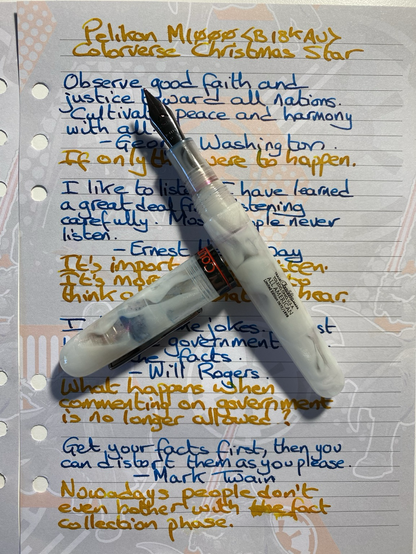 Pelikan M1000 <B18KAU>
Colorverse Christmas Star
Observe good faith and
justice toward all nations.
Cultivate peace and harmony
with all
- George Washington.
If only this were to happen.
I like to listen. I have learned
a great deal from listening
carefully. Most people never
listen.
- Ernest Hemingway
It's important listen.
It's more
think hear.
I jokes. I just
government
the facts.
- Will Rogers.
What happens when
commenting on government
is no longer allowed?
Get your facts first, then you
can distort them as you please.
- Mark Twain
Nowadays people don't
even bother with the fact
collection phase.